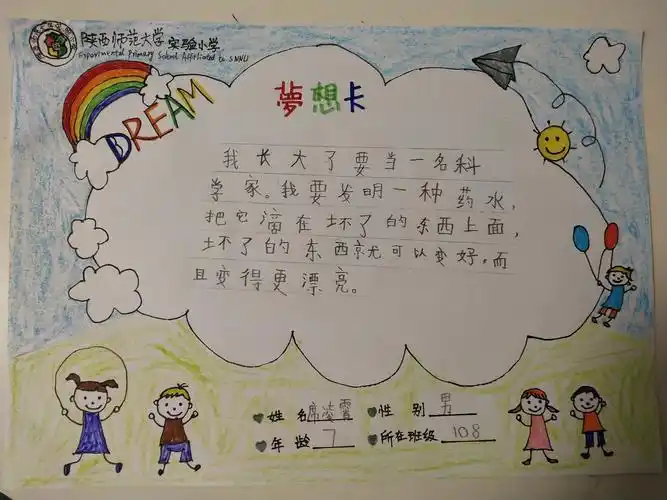 陕西师范大学实验小学
Experimental Primary School Affiliated to SNNU
DREAM
夢想卡
我长大了要当一名科
学家。我要发明一种药水，
把它滴在坏了的东西上面，
坏了的东西就可以变好。而
且变得更漂亮。
姓名席凌霄 性别男
年龄7 所在班级108